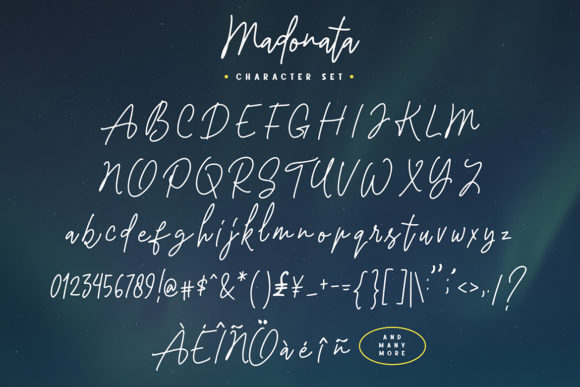 Madonata
• CHARACTER SET •
ABCDEFGHIJKLM
NOPQRSTUVWXYZ
abcdefghijklmnopqrstuvwxyz
0123456789!@#$^&*()£¥_+-={}[]|\:";'<>,./?
ÀÉÎÑÖàéîñ
AND
MANY
MORE